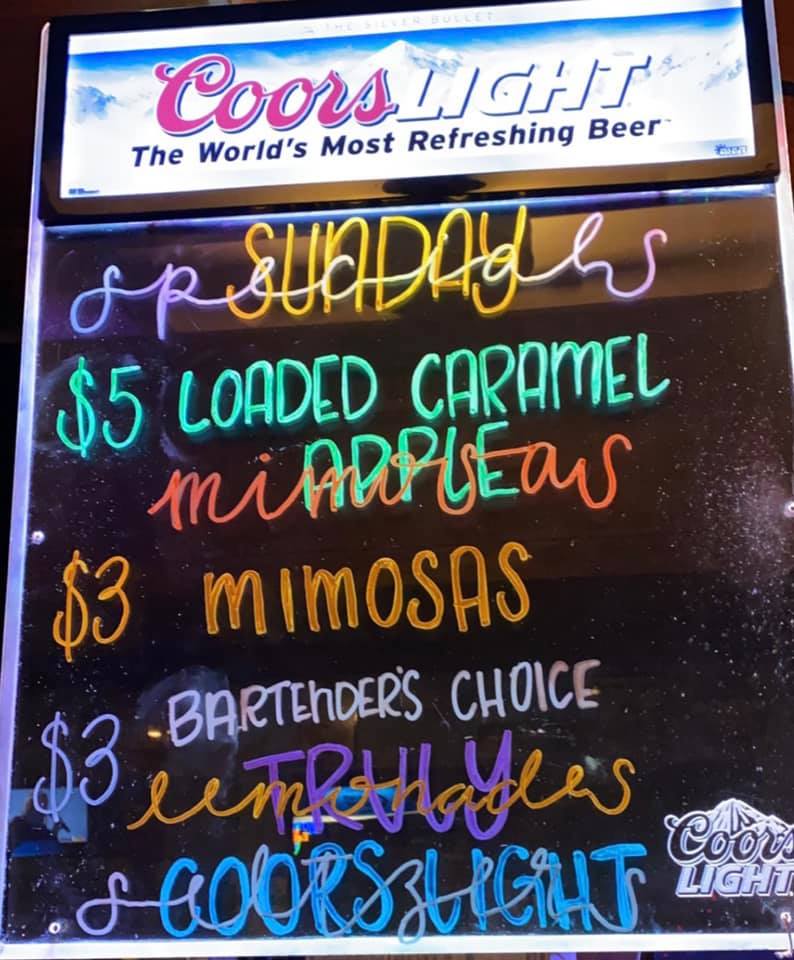 THE SILVER BULLET
Coors LIGHT
The World's Most Refreshing Beer
SUNDAY
specials
$5 LOADED CARAMEL
APPLE
mimosas
$3 MIMOSAS
$3 BARTENDER'S CHOICE
TRULY
lemonades
COORS LIGHT
seltzers
Coors
LIGHT